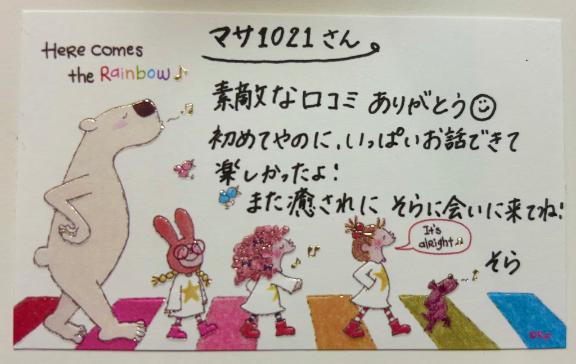 Here comes
the Rainbow♪
マサ1021さん
素敵な口コミ ありがとう☺
初めてやのに、いっぱいお話できて
楽しかったよ!
また癒されに そらに会いに来てね!
It's
alright♪
そら